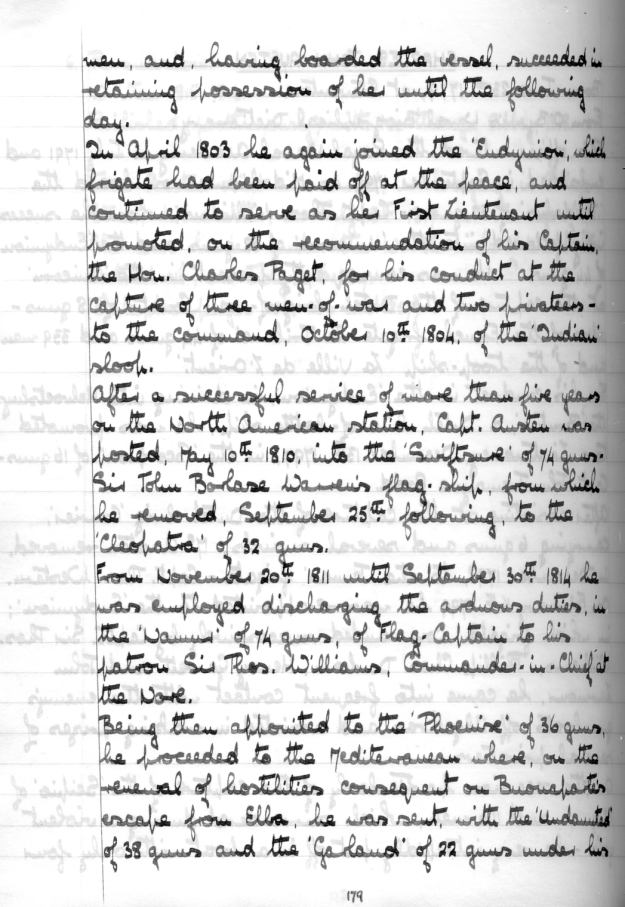 men, and, having boarded the vessel, succeeded in
retaining possession of her until the following
day.
In April 1803 he again joined the 'Endymion', which
frigate had been paid off at the peace, and
continued to serve as her First Lieutenant until
promoted, on the recommendation of his Captain,
the Hon. Charles Paget, for his conduct at the
capture of three men-of-war and two privateers -
to the command, October 10th 1804, of the 'Indian'
sloop.
After a successful service of more than five years
on the North American station, Capt. Austen was
posted, May 10th 1810, into the 'Swiftsure' of 74 guns.
Sir John Borlase Warren's flag-ship, from which
he removed, September 25th following, to the
'Cleopatra' of 32 guns.
From November 20th 1811 until September 30th 1814 he
was employed discharging the arduous duties, in
the 'Namur' of 74 guns, of Flag-Captain to his
patron Sir Thos. Williams, Commander-in-Chief at
the Nore.
Being then appointed to the 'Phoenise' of 36 guns,
he proceeded to the Mediterranean where, on the
renewal of hostilities consequent on Buonapartes
escape from Elba, he was sent, with the 'Undaunted'
of 38 guns and the 'Garland' of 22 guns under his
179